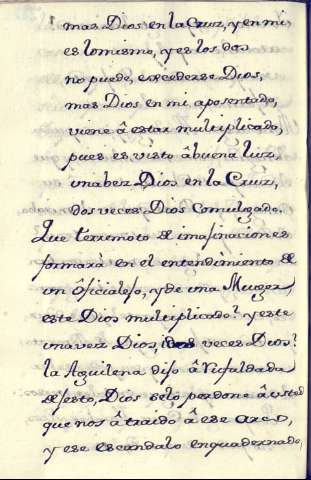 mas Dios en la Cruz, y en mi
es lo mismo, y es los dos
no puede, excederse Dios,
mas Dios en mi aposentado,
viene â estar multiplicado,
pues es visto â buena luz,
una bez Dios en la Cruz,
dos veces Dios comulgado.
Que terremoto de imaginaciones
formarà en el entendimiento de
un Oficialejo, y de una Muger,
este Dios multiplicado? y este
una vez Dios, dos veces Dios?
la Aguilena dijo â
de esto, Dios se lo perdone â usted
que nos â traido â ese
y ese escandalo enquadernado,